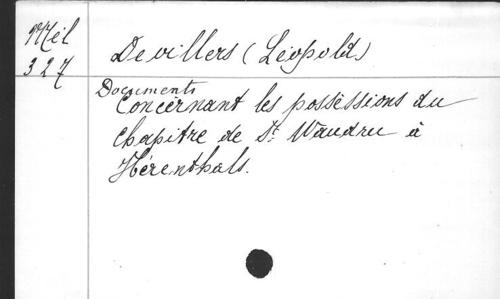 Mél
327
Devillers (Léopold)
Documents
Concernant les possessions du
chapitre de St. Waudru à
Hérenthals.